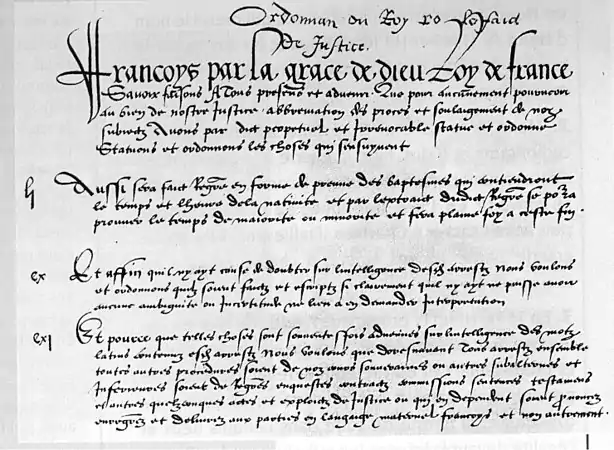 Ordonnan du Roy
de Justice.
francoys par la grace de dieu Roy de france
Scavoir faisons A tous presens et advenir. Que pour aucunement pourveoir
au bien de nostre Justice abbreviation des proces et soulagement de noz
subiectz Avons par edit perpetuel et Irrevocable statue et ordonne
Statuons et ordonnons les choses qui sensuyvent
Aussi sera faict Regre en forme de preuve des baptesmes qui contiendront
le temps et lheure dela nativite et par lextraict dudict Regre se pora
prouver le temps de maiorite ou minorite et fera plaine foy a ceste fin.
cx Et affin quil ny ayt cause de doubter sur lintelligence desd arrestz Nous voulons
et ordonnons quilz soient faictz et escriptz si clairement quil ny ayt ne puisse avoir
aucune ambiguite ou Incertitude ne lieu a en demander Interpretation
cxj Et pource que telles choses sont souventesfois advenues sur lintelligence des motz
latins contenuz esd arrestz Nous voulons que doresnavant Tous arrestz ensemble
toutes autres procedures soient de noz cours souveraines ou autres subalternes et
Inferieures soient de Regres enquestes contractz commissions sentences testamens
et autres quelzconques actes et exploictz de Justice ou qui en dependent soient prononcez
enregrez et delivrez aux parties en langage maternel francoys et non autrement.